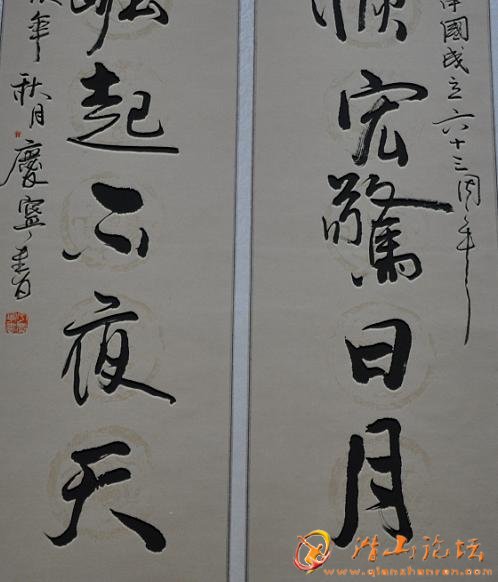 國成立六十三周年
恢宏驚日月
崛起不夜天
年秋月慶寧書
潜山论坛
www.qianshanren.com